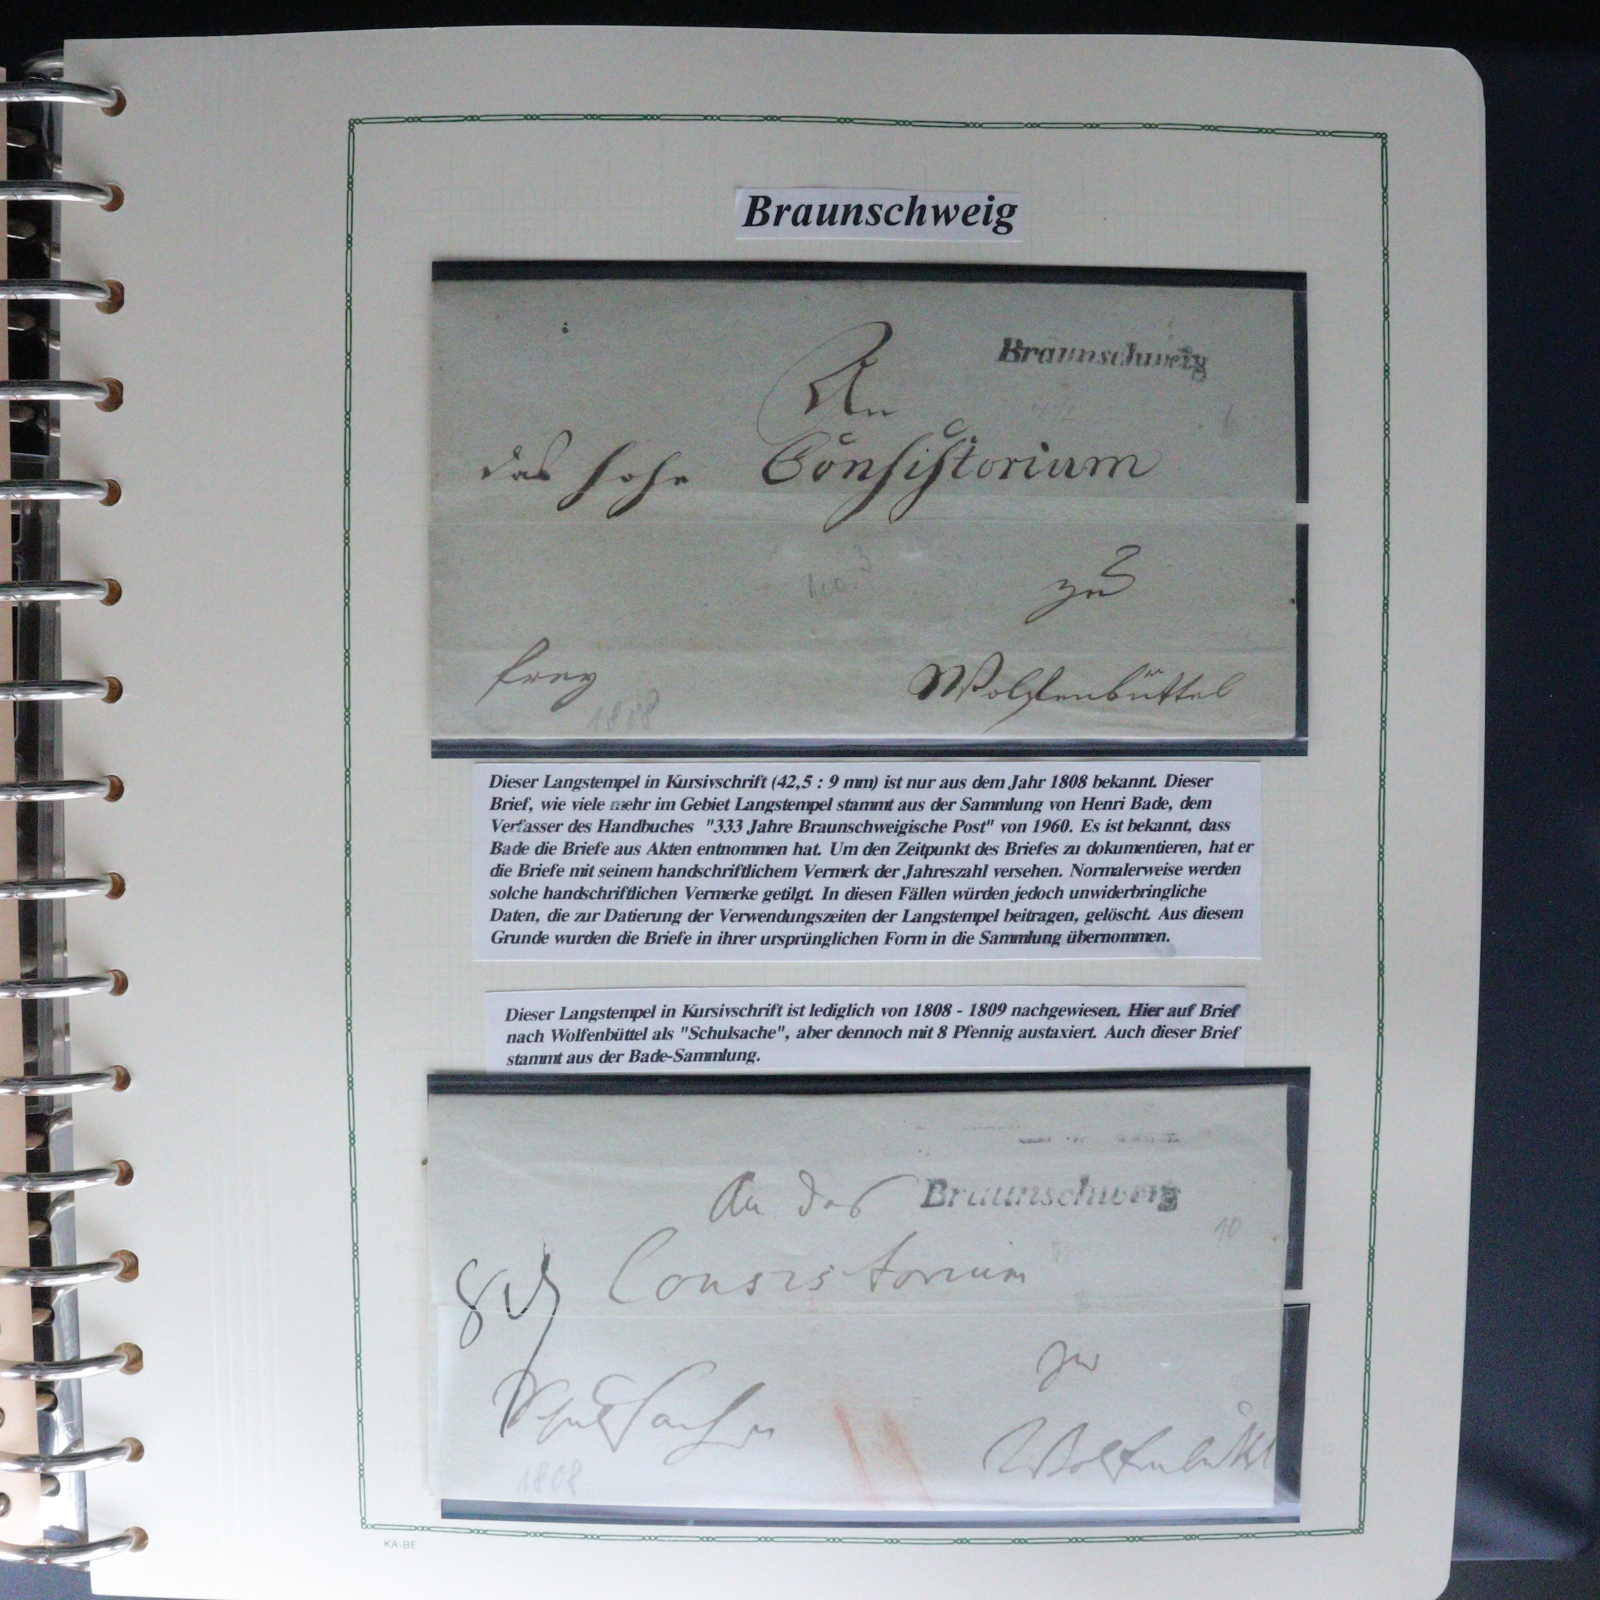 Braunschweig
Braunschweig
An
das hohe Consistorium
zu
frey
Wolfenbüttel
1808
Dieser Langstempel in Kursivschrift (42,5 : 9 mm) ist nur aus dem Jahr 1808 bekannt. Dieser
Brief, wie viele mehr im Gebiet Langstempel stammt aus der Sammlung von Henri Bade, dem
Verfasser des Handbuches "333 Jahre Braunschweigische Post" von 1960. Es ist bekannt, dass
Bade die Briefe aus Akten entnommen hat. Um den Zeitpunkt des Briefes zu dokumentieren, hat er
die Briefe mit seinem handschriftlichem Vermerk der Jahreszahl versehen. Normalerweise werden
solche handschriftlichen Vermerke getilgt. In diesen Fällen würden jedoch unwiderbringliche
Daten, die zur Datierung der Verwendungszeiten der Langstempel beitragen, gelöscht. Aus diesem
Grunde wurden die Briefe in ihrer ursprünglichen Form in die Sammlung übernommen.
Dieser Langstempel in Kursivschrift ist lediglich von 1808 - 1809 nachgewiesen. Hier auf Brief
nach Wolfenbüttel als "Schulsache", aber dennoch mit 8 Pfennig austaxiert. Auch dieser Brief
stammt aus der Bade-Sammlung.
An das Braunschweig
10
8 Consistorium
zu
Schulsache
Wolfenbüttel
1808
KA-BE